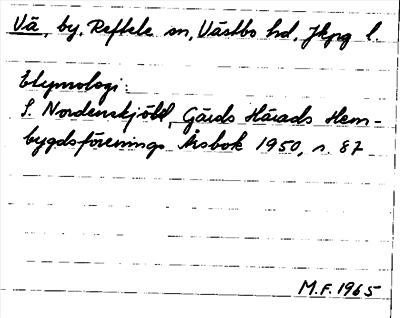 Vä, by, Reftele sn, Västbo hd, Jkpg l.
Etymologi:
S. Nordenskjöld, Gärds Härads Hem-
bygdsförenings Årsbok 1950, s. 87
M.F. 1965